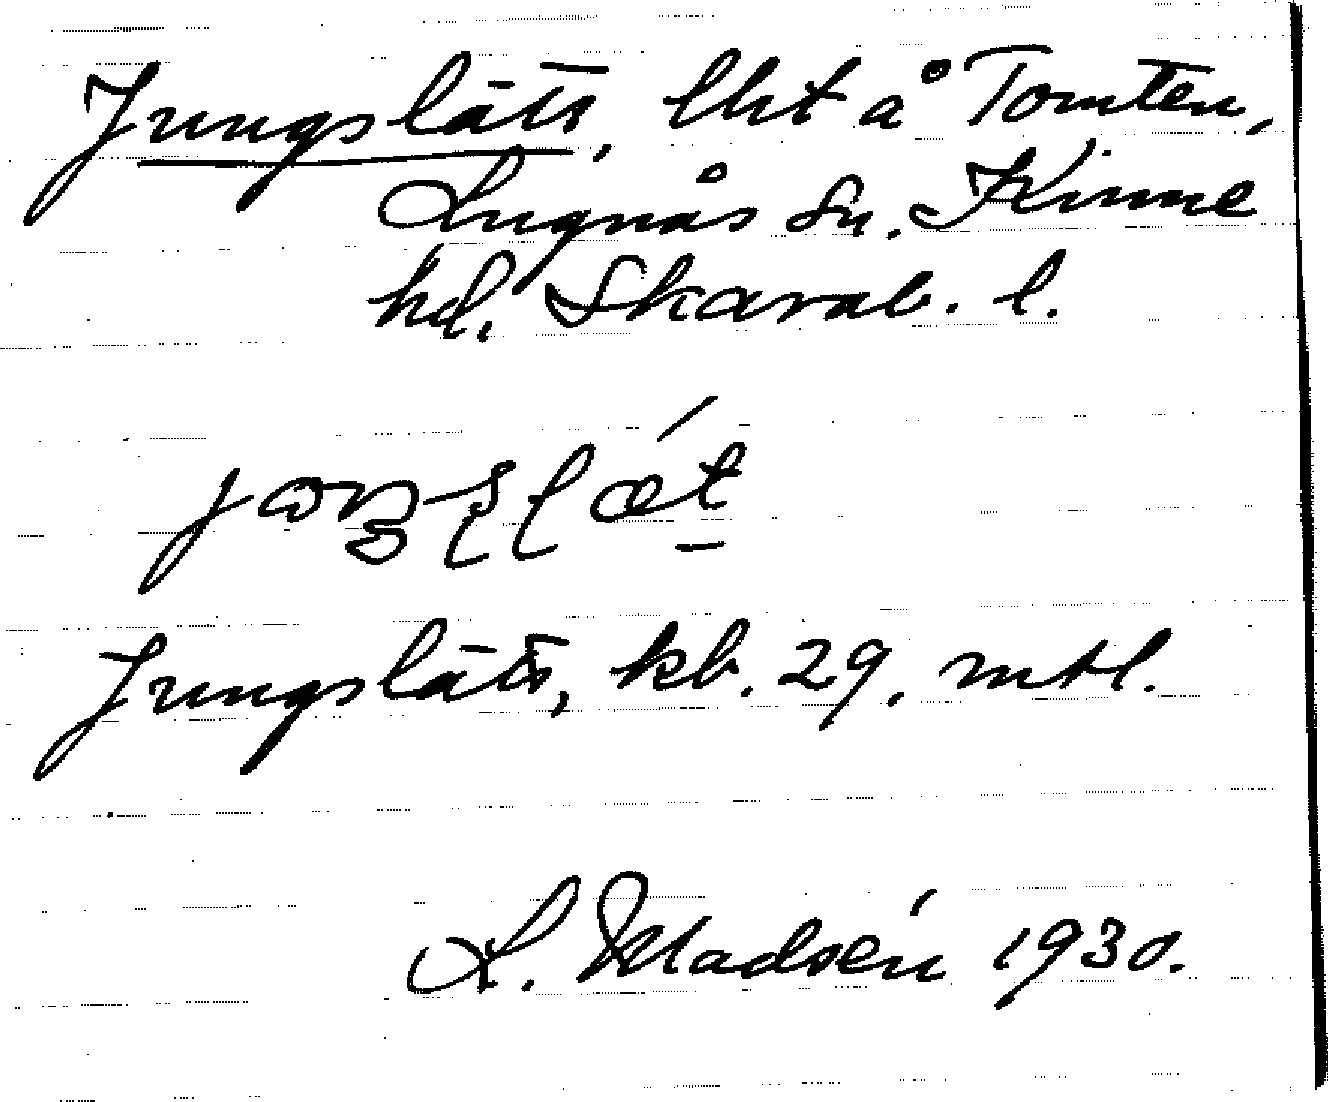 Jungslätt, lht å Tomten,
Lugnås sn. Kinne
hd. Skarab. l.
Jungslätt, kb. 29. mtl.
L. Madsén 1930.